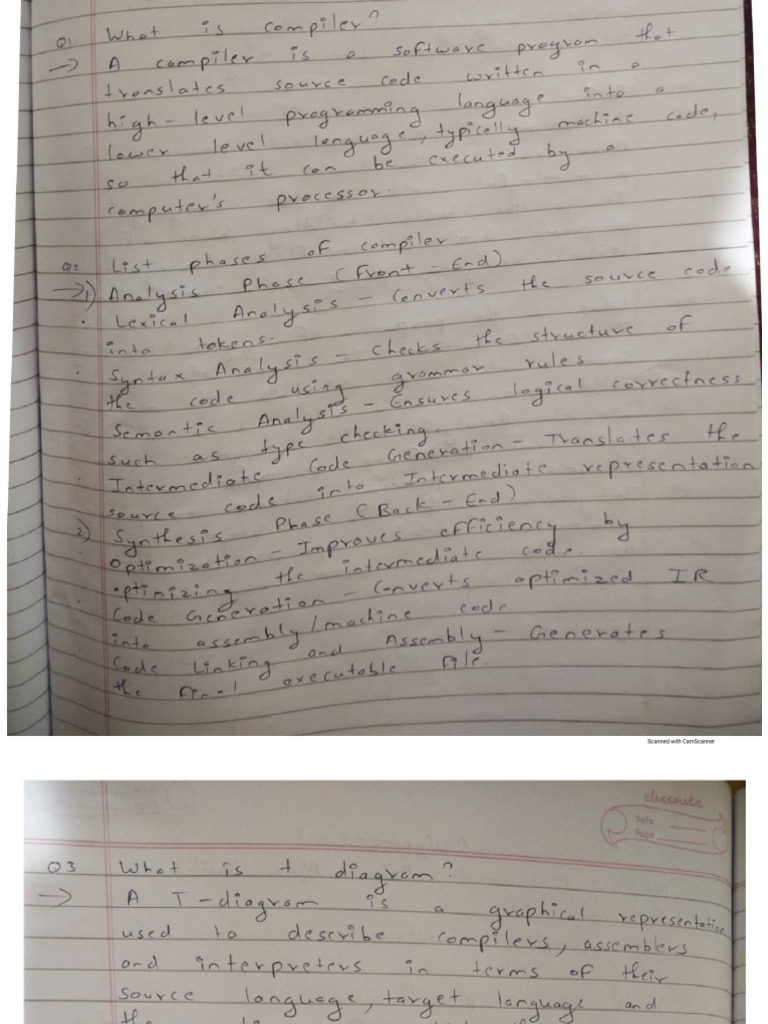 Q1 What is compiler?
→ A compiler is a software program that
translates source code written in a
high-level programming language into a
lower level lenguage, typically machine code,
so that it can be executed by a
computer's processor.
Q2 List phases of compiler
→ 1) Analysis Phase (Front-End)
· Lexical Analysis - Converts the source code
into tokens.
· Syntax Analysis - Checks the structure of
the code using grammar rules
· Semantic Analysis - Ensures logical correctness
such as type checking.
· Intermediate Code Generation - Translates the
source code into Intermediate representation
2) Synthesis Phase (Back-End)
· Optimization - Improves efficiency by
optinizing the intermediate code.
· Code Generation - Converts optimized IR
into assembly/machine code
· Code Linking and Assembly - Generates
the final executable file.
Scanned with CamScanner
classmate
Date
Page
Q3 What is t diagram?
→ A T-diagram is a graphical representation
used to describe compilers, assemblers
and interpreters in terms of their
source language, target language and
the